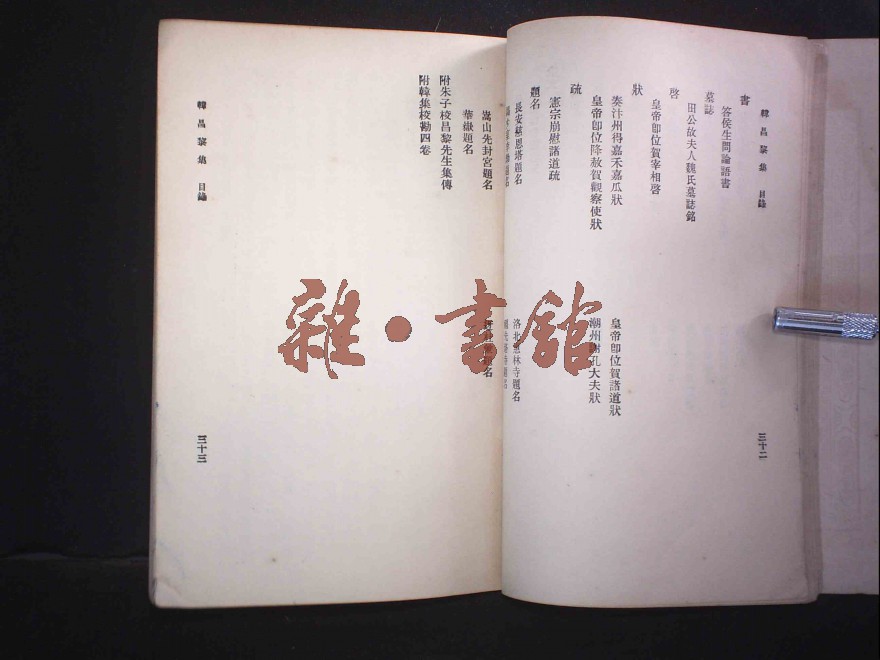 韓昌黎集 目錄
三十二
書
答侯生問論語書
墓誌
田公故夫人魏氏墓誌銘
啓
皇帝卽位賀宰相啓
狀
奏汴州得嘉禾嘉瓜狀
皇帝卽位賀諸道狀
皇帝卽位降赦賀觀察使狀
潮州謝孔大夫狀
疏
憲宗崩慰諸道疏
題名
長安慈恩塔題名
洛北惠林寺題名
嵩山先封宮題名
題名
華嶽題名
附朱子校昌黎先生集傳
附韓集校勘四卷
韓昌黎集 目錄
三十三
雜·書館